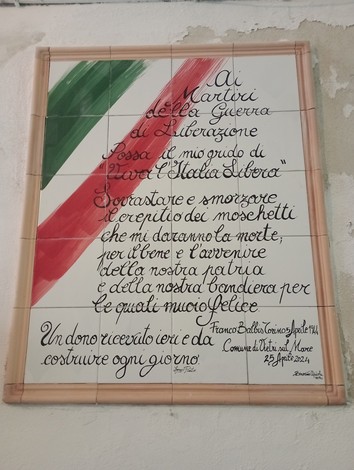 Ai
Martiri
della Guerra
di Liberazione
Possa il mio grido di
"Viva l'Italia Libera"
Sovrastare e smorzare
il crepitio dei moschetti
che mi daranno la morte;
per il bene e l'avvenire
della nostra patria
e della nostra bandiera per
le quali muoio felice
Franco Balbis Torino 5 Aprile 1944
Un dono ricevuto ieri e da
costruire ogni giorno
Comune di Vietri sul Mare
25 Aprile 2024